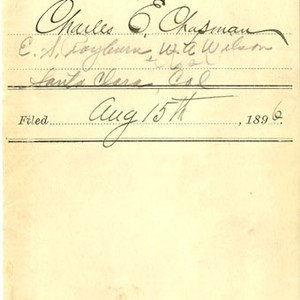 Charles E. Chapman
E. S. W. A. Wilson
Santa Clara, Cal
Filed Aug 15th, 1896.